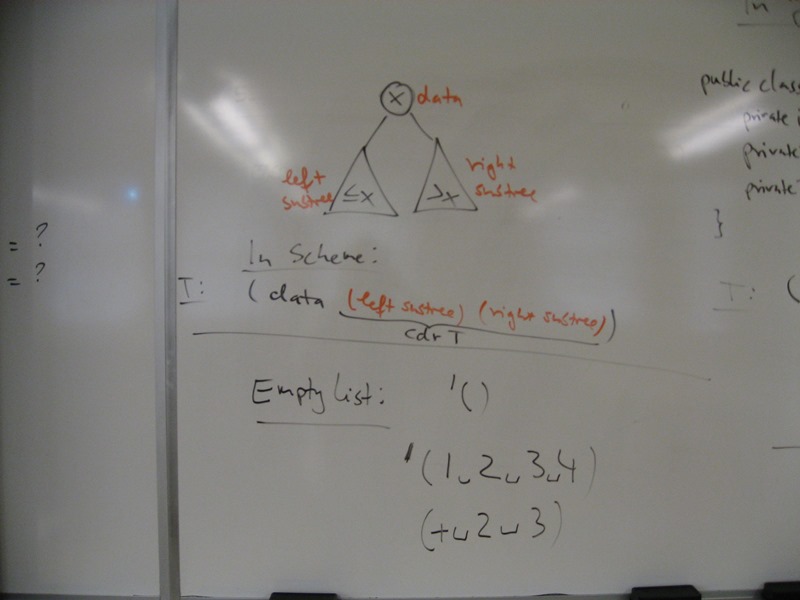 = ?
= ?
x data
left
sustree
≤x
>x
right
sustree
In Scheme:
T: (data (left sustree) (right sustree))
cdr T
Empty list: '()
'(1␣2␣3␣4)
(+␣2␣3)
In
public class
private i
private
private
}
T: (